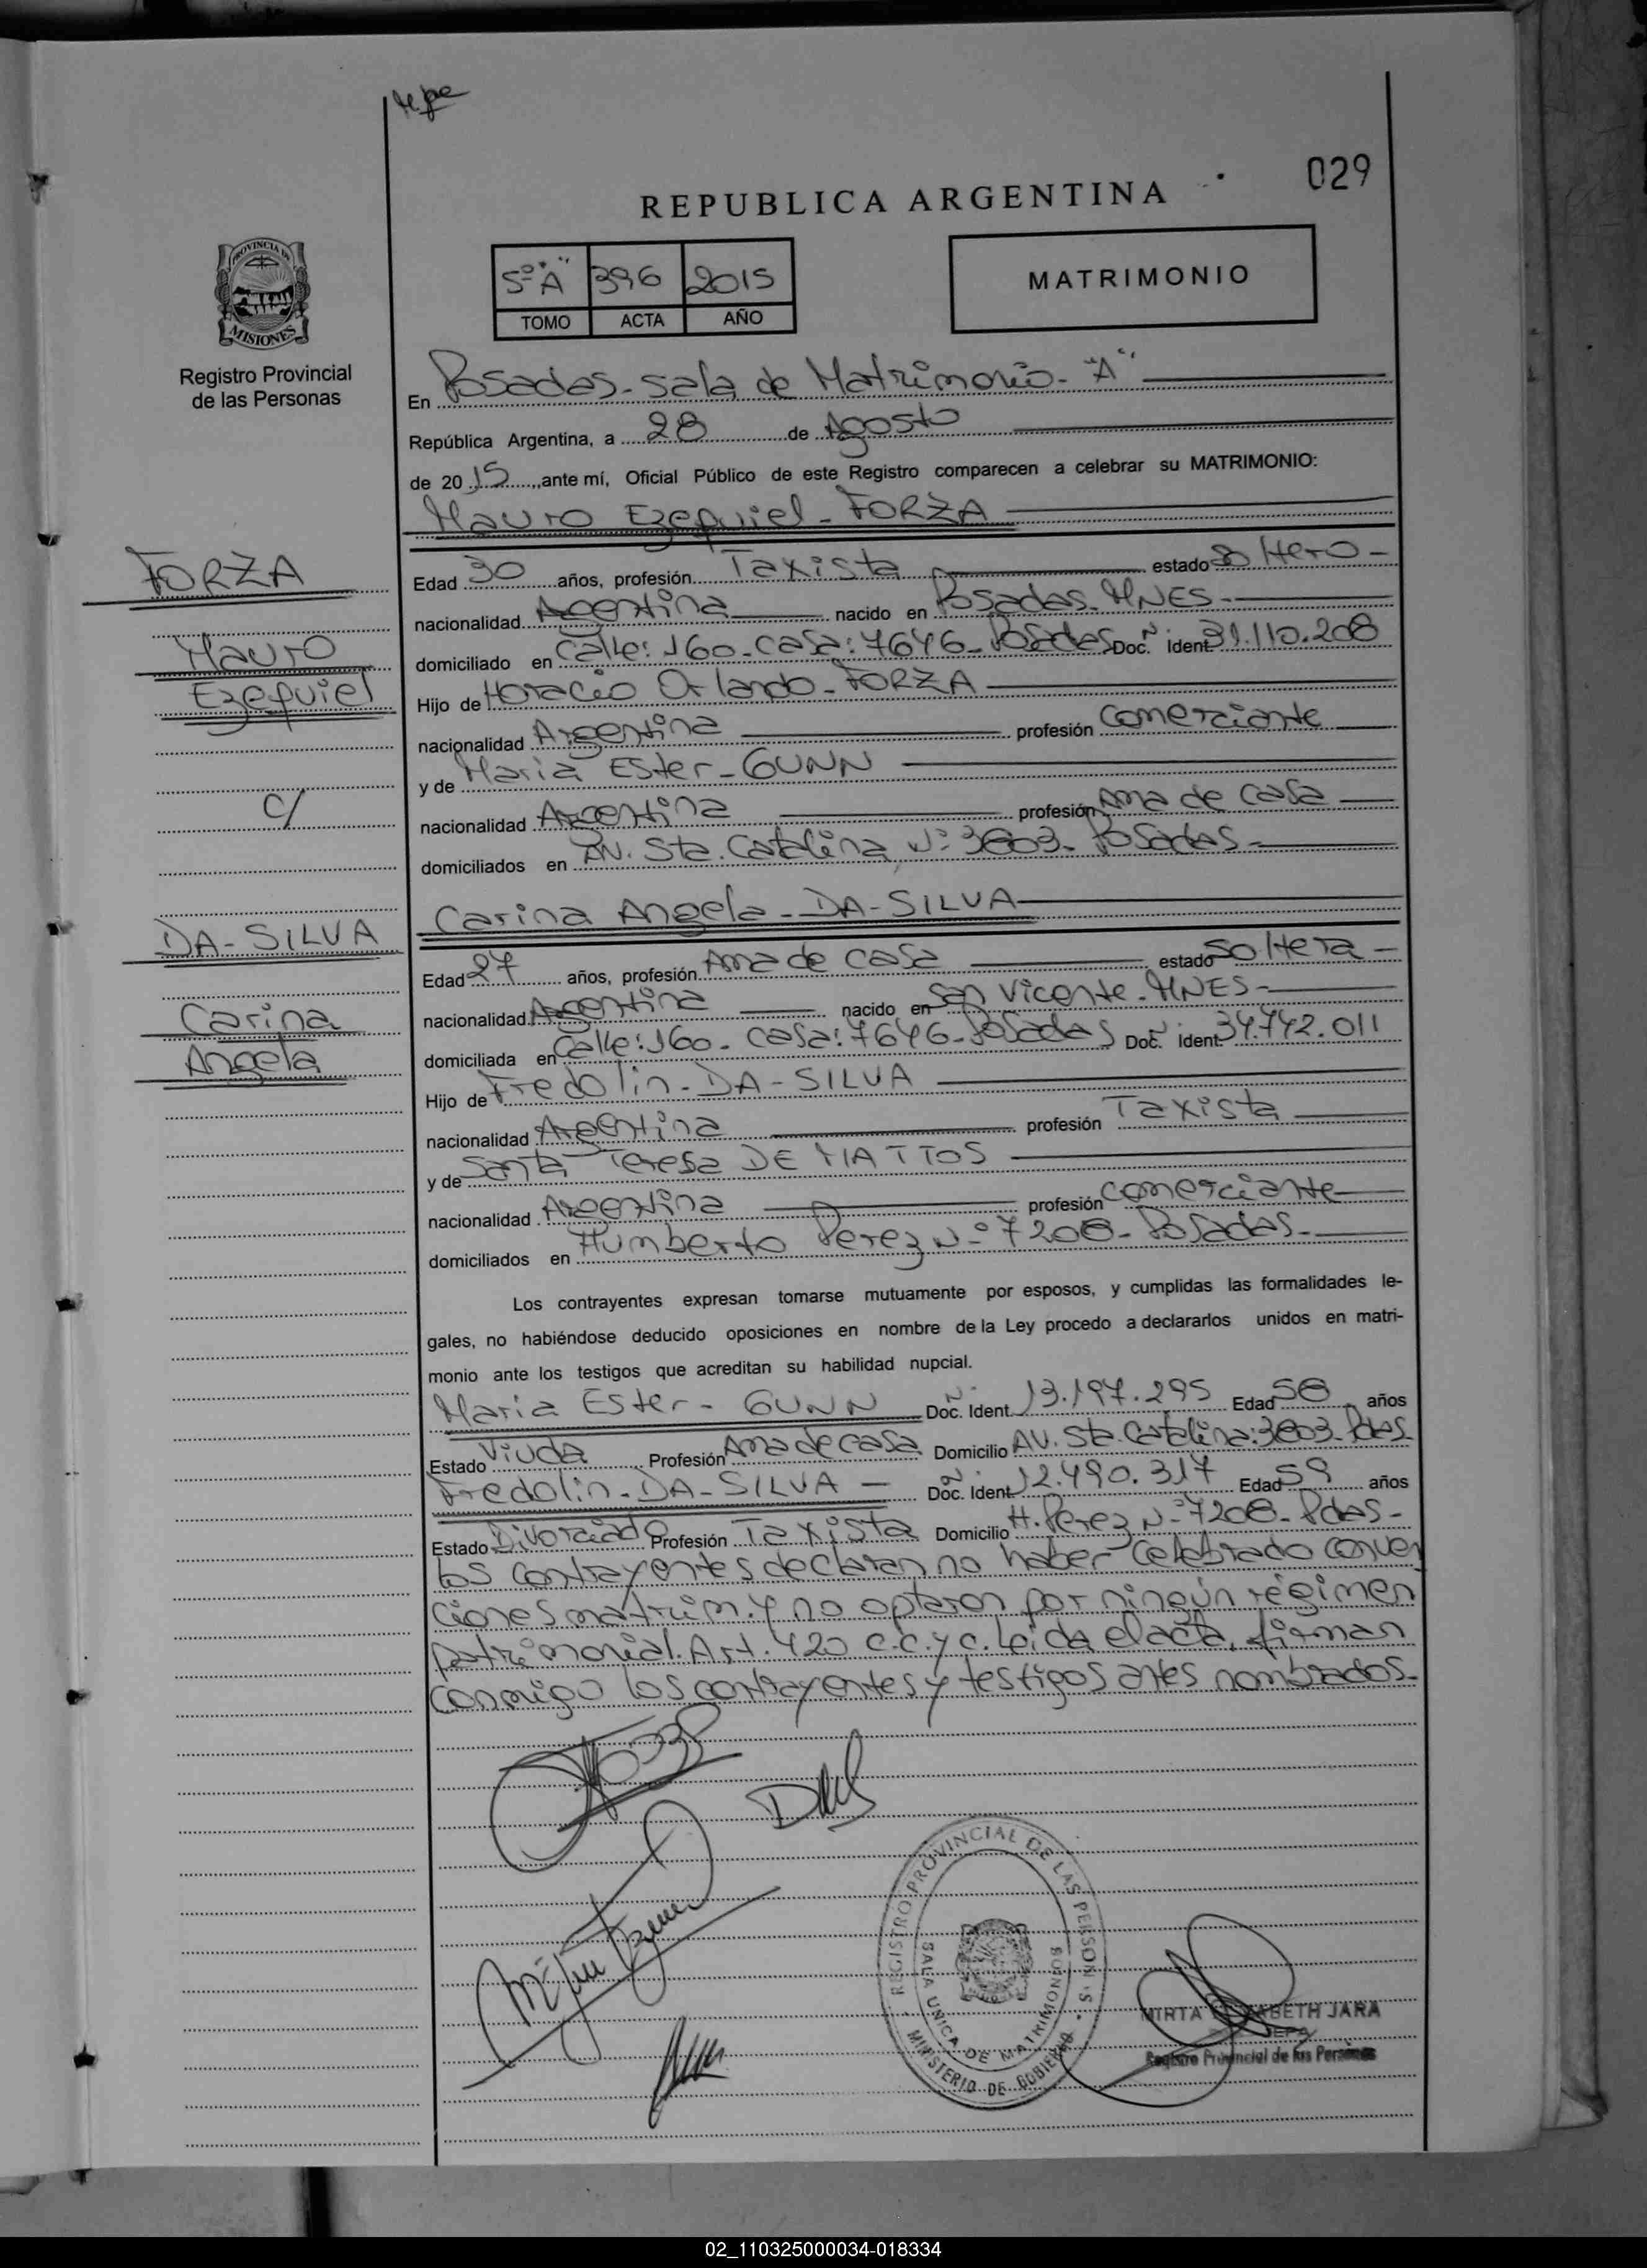 029
REPUBLICA ARGENTINA
PROVINCIA DE
MISIONES
Registro Provincial
de las Personas
5º "A" 396 2015
TOMO ACTA AÑO
MATRIMONIO
En Posadas - sala de Matrimonio - "A"
República Argentina, a 28 de Agosto
de 2015, ante mí, Oficial Público de este Registro comparecen a celebrar su MATRIMONIO:
Mauro Ezequiel - FORZA
FORZA
Mauro
Ezequiel
c/
DA-SILVA
Carina
Angela
Edad 30 años, profesión Taxista estado Soltero -
nacionalidad Argentina nacido en Posadas - MNES -
domiciliado en Calle: 160 - Casa: 7646 - Posadas Doc. Nº Ident. 31.110.208
Hijo de Horacio Orlando - FORZA
nacionalidad Argentina profesión Comerciante
y de Maria Ester - GUNN
nacionalidad Argentina profesión Ama de casa
domiciliados en AV. Sta. Catalina Nº 3803 - Posadas -
Carina Angela - DA-SILVA
Edad 27 años, profesión Ama de casa estado Soltera -
nacionalidad Argentina nacido en San Vicente - MNES -
domiciliada en Calle: 160 - Casa: 7646 - Posadas Doc. Nº Ident. 34.742.011
Hijo de Fredolin - DA-SILVA
nacionalidad Argentina profesión Taxista
y de Santa Teresa DE MATTOS
nacionalidad Argentina profesión Comerciante
domiciliados en Humberto Perez Nº 7208 - Posadas -
Los contrayentes expresan tomarse mutuamente por esposos, y cumplidas las formalidades le-
gales, no habiéndose deducido oposiciones en nombre de la Ley procedo a declararlos unidos en matri-
monio ante los testigos que acreditan su habilidad nupcial.
Maria Ester - GUNN Doc. Nº Ident. 13.197.295 Edad 58 años
Estado Viuda Profesión Ama de casa Domicilio AV. Sta. Catalina: 3803 - Pdas.
Fredolin - DA-SILVA - Doc. Nº Ident. 12.490.317 Edad 59 años
Estado Divorciado Profesión Taxista Domicilio H. Perez Nº 7208 - Pdas -
Los contrayentes declaran no haber celebrado conven
ciones matrim. y no optaron por ningún régimen
patrimonial. Art. 420 C.C. y C. Leida el acta, firman
conmigo los contrayentes y testigos antes nombrados.
REGISTRO PROVINCIAL DE LAS PERSONAS
SALA UNICA DE MATRIMONIOS
MINISTERIO DE GOBIERNO
MIRTA ELIZABETH JARA
JEFA
Registro Provincial de las Personas
02_110325000034-018334